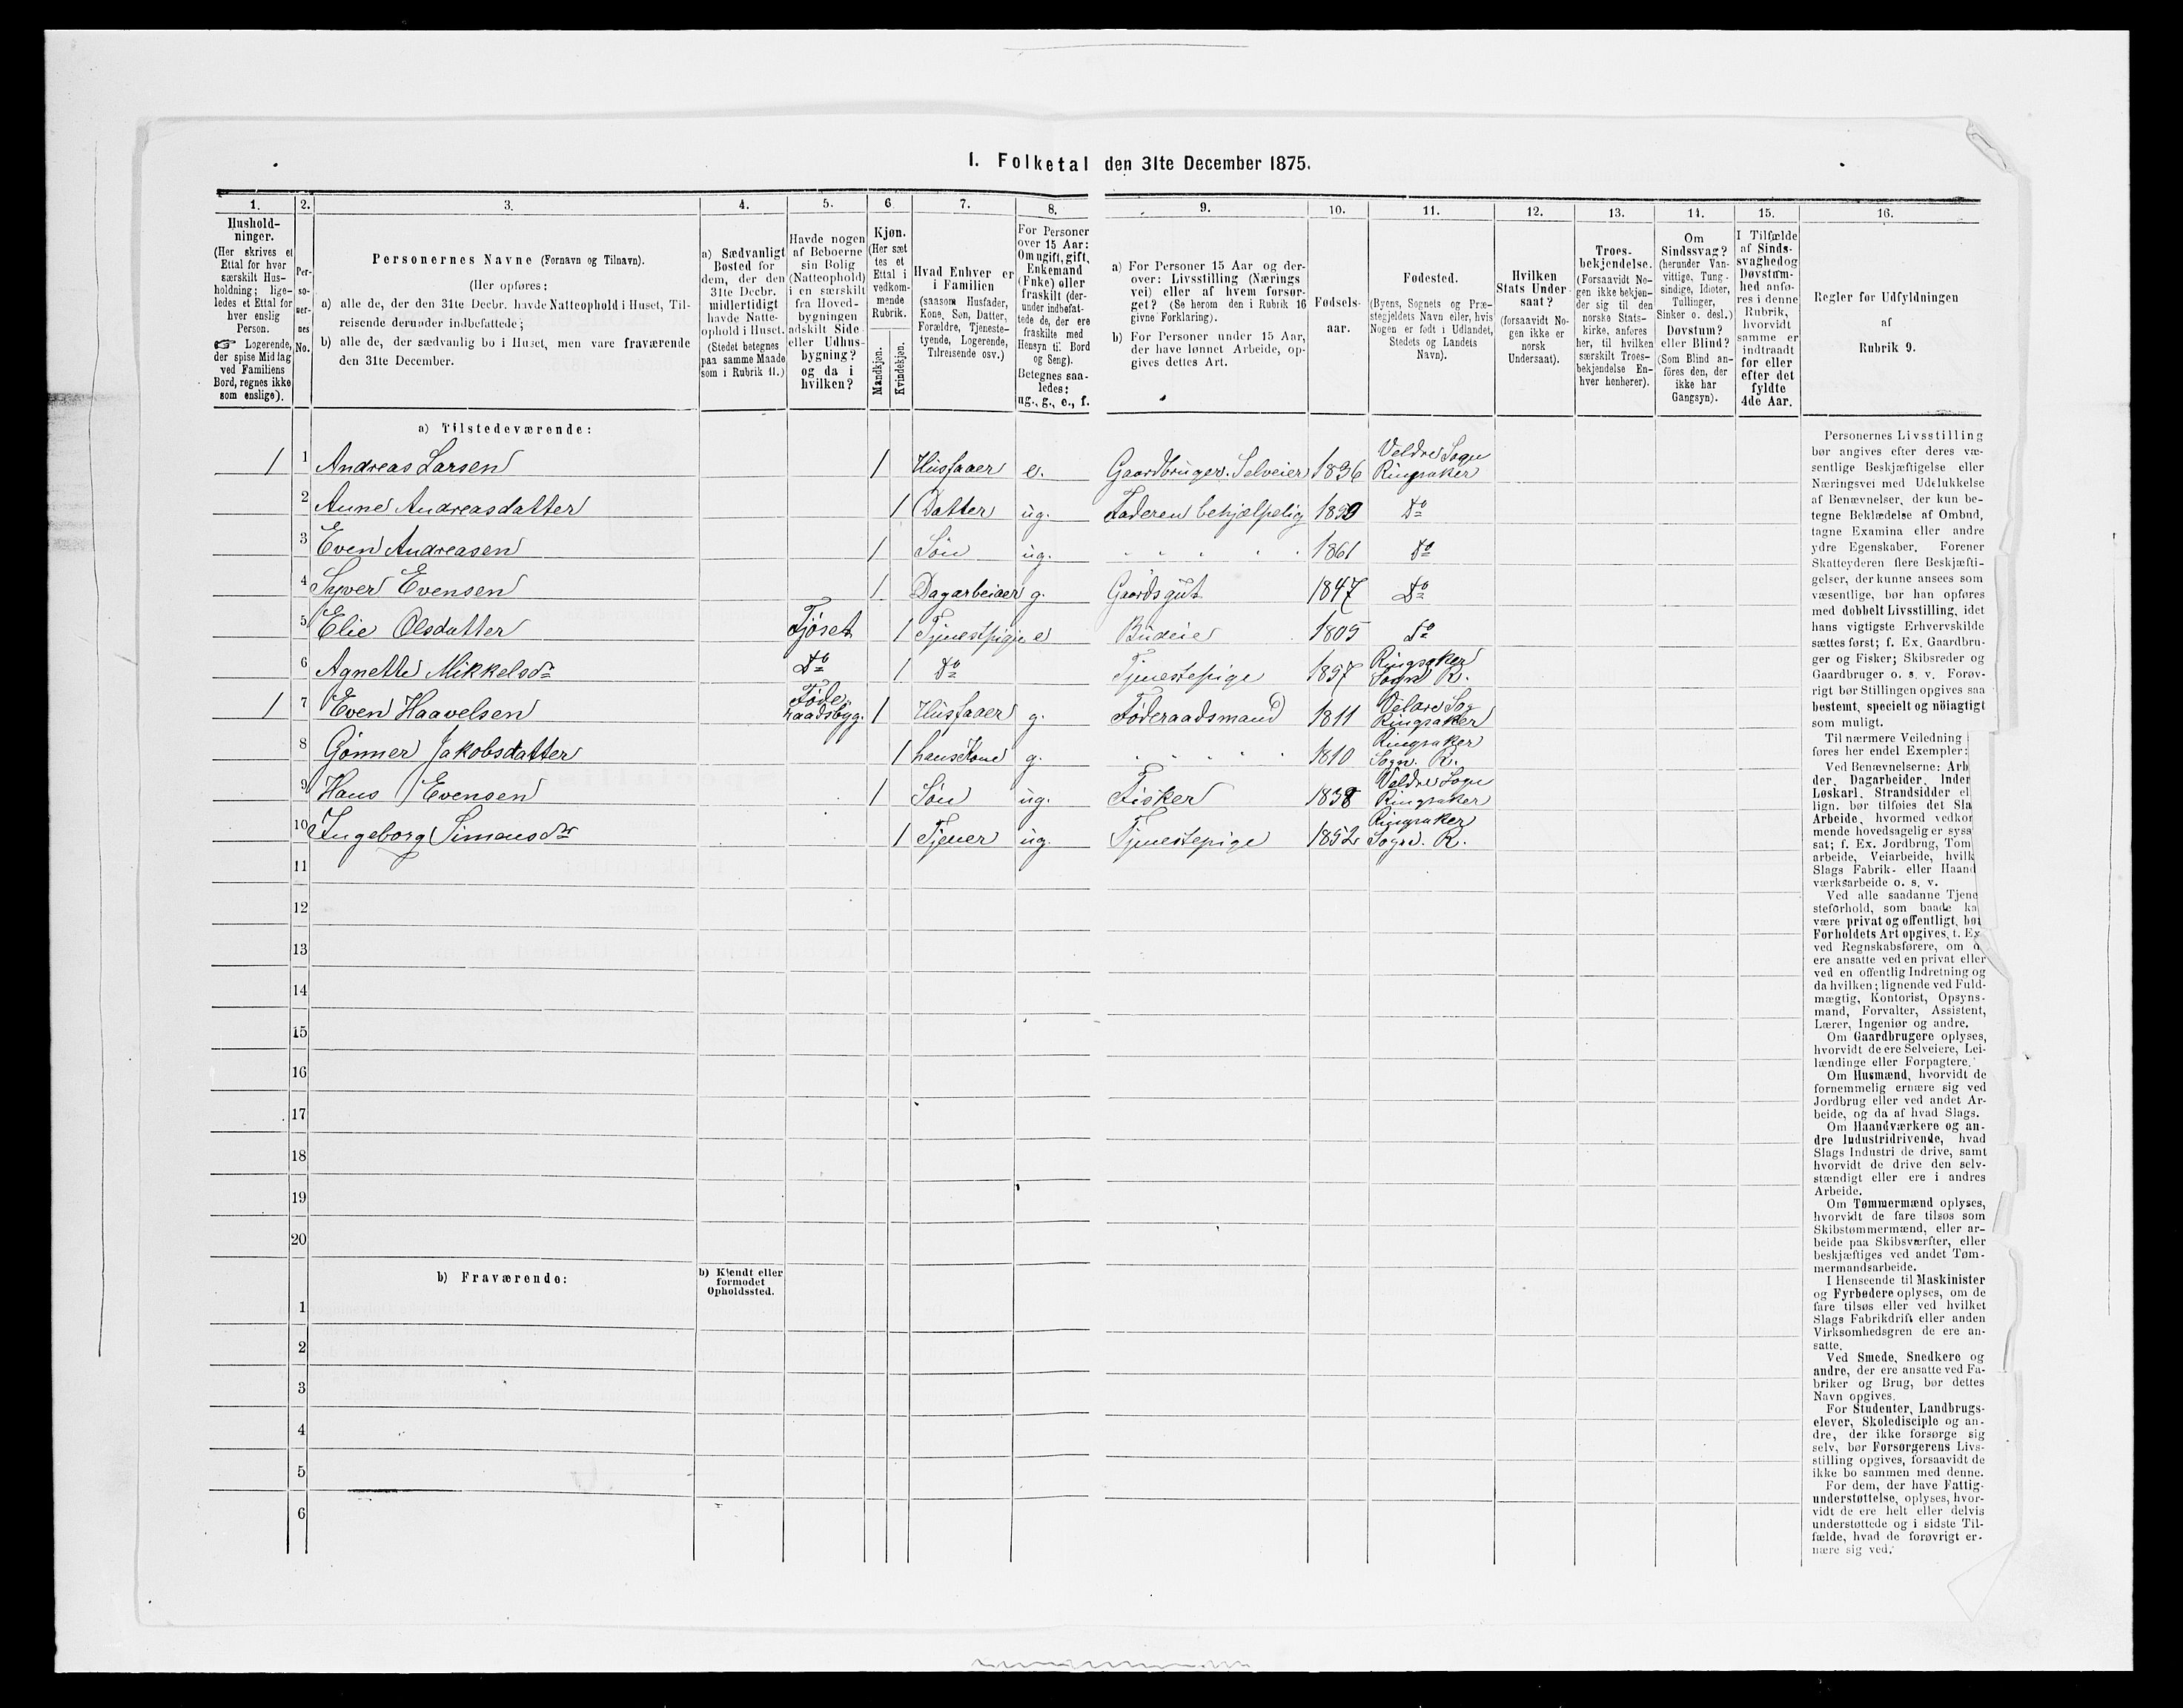 1. Folketal den 31te December 1875.
1.
Hushold-
ninger.
(Her skrives et
Ettal for hver
særskilt Hus-
holdning; lige-
ledes et Ettal for
hver enslig
Person.
☞ Logerende,
der spise Middag
ved Familiens
Bord, regnes ikke
som enslige).
2.
Per-
so-
ner-
nes
No.
3.
Personernes Navne (Fornavn og Tilnavn).
(Her opføres:
a) alle de, der den 31te Decbr. havde Natteophold i Huset, Til-
reisende derunder indbefattede;
b) alle de, der sædvanlig bo i Huset, men vare fraværende
den 31te December.
4.
a) Sædvanligt
Bosted for
dem, der den
31te Decbr.
midlertidigt
havde Natte-
ophold i Huset.
(Stedet betegnes
paa samme Maade
som i Rubrik 11.)
5.
Havde nogen
af Beboerne
sin Bolig
(Natteophold)
i en særskilt
fra Hoved-
bygningen
adskilt Side-
eller Udhus-
bygning?
og da i
hvilken?
6
Kjøn.
(Her sæt
tes et
Ettal i
vedkom-
mende
Rubrik.
Mandkjøn.
Kvindekjøn.
7.
Hvad Enhver er
i Familien
(saasom Husfader,
Kone, Søn, Datter,
Forældre, Tjeneste-
tyende, Logerende,
Tilreisende osv.)
8.
For Personer
over 15 Aar:
Om ugift, gift,
Enkemand
(Enke) eller
fraskilt (der-
under indbefat-
tede de, der ere
fraskilte med
Hensyn til Bord
og Seng).
Betegnes saa-
ledes:
ug., g., e., f.
9.
a) For Personer 15 Aar og der-
over: Livsstilling (Nærings
vei) eller af hvem forsør-
get? (Se herom den i Rubrik 16
givne Forklaring).
b) For Personer under 15 Aar,
der have lønnet Arbeide, op-
gives dettes Art.
10.
Fødsels-
aar.
11.
Fødested.
(Byens, Sognets og Præ-
stegjeldets Navn eller, hvis
Nogen er født i Udlandet,
Stedets og Landets
Navn).
12.
Hvilken
Stats Under
saat?
(forsaavidt No-
gen ikke er
norsk
Undersaat).
13.
Troes-
bekjendelse.
(Forsaavidt No-
gen ikke bekjen-
der sig til den
norske Stats-
kirke, anføres
her, til hvilken
særskilt Troes-
bekjendelse En-
hver henhører).
14.
Om
Sindssvag?
(herunder Van-
vittige, Tung-
sindige, Idioter,
Tullinger,
Sinker o. desl.)
Døvstum?
eller Blind?
(Som Blind an-
føres den, der
ikke har
Gangsyn).
15.
I Tilfælde
af Sinds-
svaghed og
Døvstum-
hed anfø-
res i denne
Rubrik,
hvorvidt
samme er
indtraadt
før eller
efter det
fyldte
4de Aar.
16.
Regler for Udfyldningen
af
Rubrik 9.
a) Tilstedeværende:
1 1 Andreas Larsen 1 Husfader e. Gaardbruger. Selveier 1836 Veldre Sogn Ringsaker
2 Anne Andreasdatter 1 Datter ug. Faderen behjælpelig 1859 Do
3 Even Andreasen 1 Søn ug. " " " " " 1861 Do
4 Syver Evensen 1 Dagarbeider g. Gaardsgut 1847 Do
5 Elie Olsdatter Fjøset 1 Tjenestpige e Budeie 1805 Do
6 Agnette Mikkelsdr Do 1 Do Tjenestepige 1857 Ringsaker Sogn R.
1 7 Even Haavelsen Føde- raadsbyg. 1 Husfader g. Føderaadsmand 1811 Veldre Sog Ringsaker
8 Gønner Jakobsdatter 1 hans Kone g. " " " " 1810 Ringsaker Sogn. R.
9 Hans Evensen 1 Søn ug. Fisker 1838 Veldre Sogn Ringsaker
10 Ingeborg Simensdr 1 Tjener ug. Tjenestepige 1852 Ringsaker Sogn. R.
11
12
13
14
15
16
17
18
19
20
b) Fraværende:
b) Kjendt eller
formodet
Opholdssted.
1
2
3
4
5
6
Personernes Livsstilling
bør angives efter deres væ-
sentlige Beskjæftigelse eller
Næringsvei med Udelukkelse
af Benævnelser, der kun be-
tegne Beklædelse af Ombud,
tagne Examina eller andre
ydre Egenskaber. Forener
Skatteyderen flere Beskjæfti-
gelser, der kunne ansees som
væsentlige, bør han opføres
med dobbelt Livsstilling, idet
hans vigtigste Erhvervskilde
sættes først; f. Ex. Gaardbru-
ger og Fisker; Skibsreder og
Gaardbruger o. s. v. Forøv-
rigt bør Stillingen opgives saa
bestemt, specielt og nöiagtigt
som muligt.
Til nærmere Veiledning
føres her endel Exempler:
Ved Benævnelserne: Arb
der, Dagarbeider, Inder
Løskarl, Strandsidder el
lign. bør tilføies det Sla
Arbeide, hvormed vedkom
mende hovedsagelig er syss
sat; f. Ex. Jordbrug, Tom
arbeide, Veiarbeide, hvilk
Slags Fabrik- eller Haand
værksarbeide o. s. v.
Ved alle saadanne Tjene
steforhold, som baade ka
være privat og offentligt, bør
Forholdets Art opgives, f. Ex
ved Regnskabsførere, om d
ere ansatte ved en privat eller
ved en offentlig Indretning og
da hvilken; lignende ved Fuld-
mægtig, Kontorist, Opsyns-
mand, Forvalter, Assistent,
Lærer, Ingeniør og andre.
Om Gaardbrugere oplyses,
hvorvidt de ere Selveiere, Lei-
lændinge eller Forpagtere.
Om Husmænd, hvorvidt de
fornemmelig ernære sig ved
Jordbrug eller ved andet Ar-
beide, og da af hvad Slags.
Om Haandværkere og an-
dre Industridrivende, hvad
Slags Industri de drive, samt
hvorvidt de drive den selv-
stændigt eller ere i andres
Arbeide.
Om Tømmermænd oplyses,
hvorvidt de fare tilsøs som
Skibstømmermænd, eller ar-
beide paa Skibsværfter, eller
beskjæftiges ved andet Tøm-
mermandsarbeide.
I Henseende til Maskinister
og Fyrbødere oplyses, om de
fare tilsøs eller ved hvilket
Slags Fabrikdrift eller anden
Virksomhedsgren de ere an-
satte.
Ved Smede, Snedkere og
andre, der ere ansatte ved Fa-
briker og Brug, bør dettes
Navn opgives.
For Studenter, Landbrugs-
elever, Skoledisciple og an-
dre, der ikke forsørge sig
selv, bør Forsørgerens Livs-
stilling opgives, forsaavidt de
ikke bo sammen med denne.
For dem, der have Fattig-
understøttelse, oplyses, hvor-
vidt de ere helt eller delvis
understøttede og i sidste Til-
fælde, hvad de forøvrigt er-
nære sig ved.